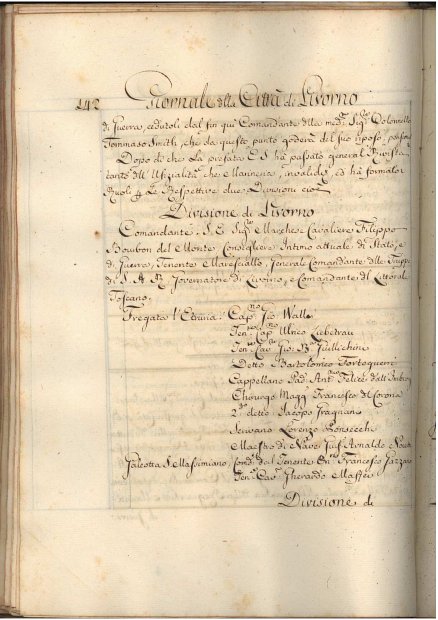 142 Giornale della Città di Livorno
di Guerra, cedutoli dal fin qui Comandante della med.ª Sig.re Colonnello
Tommaso Smith, che da questo punto goderà del suo riposo,
Dopo di che La prefata E. S. hà passato general Rivista
tanto dell' Ufizialità che Marineria, invalidi, ed hà formato i
Ruoli p. Le Respettive due Divisioni cioè
Divisione di Livorno
Comandante: S. E. Sig.re Marchese Cavaliere Filippo
Bourbon del Monte Consigliere Intimo attuale di Stato, e
di Guerra, Tenente Maresciallo, Generale Comandante delle Truppe
di S. A. R. Governatore di Livorno, e Comandante del Littorale
Toscano.
Fregata l'Etruria: Cap.no Gio Wall
Ten. Cap.no Ulrico Liebetrau
Ten. Cav. Gio. Ba
Detto Bartolomeo
Cappellano Pad. Ant.º Felice dell'
Chirurgo Magg. Francesco
2.do detto Jacopo Gragnani
Scrivano Lorenzo Bonsecchi
Maestro di Nave Gius. Arnaldo
Galeotta S. Massimiano, Cond. dal Tenente On. Francesco
Ten. Cav. Gherardo Maffei
Divisione di